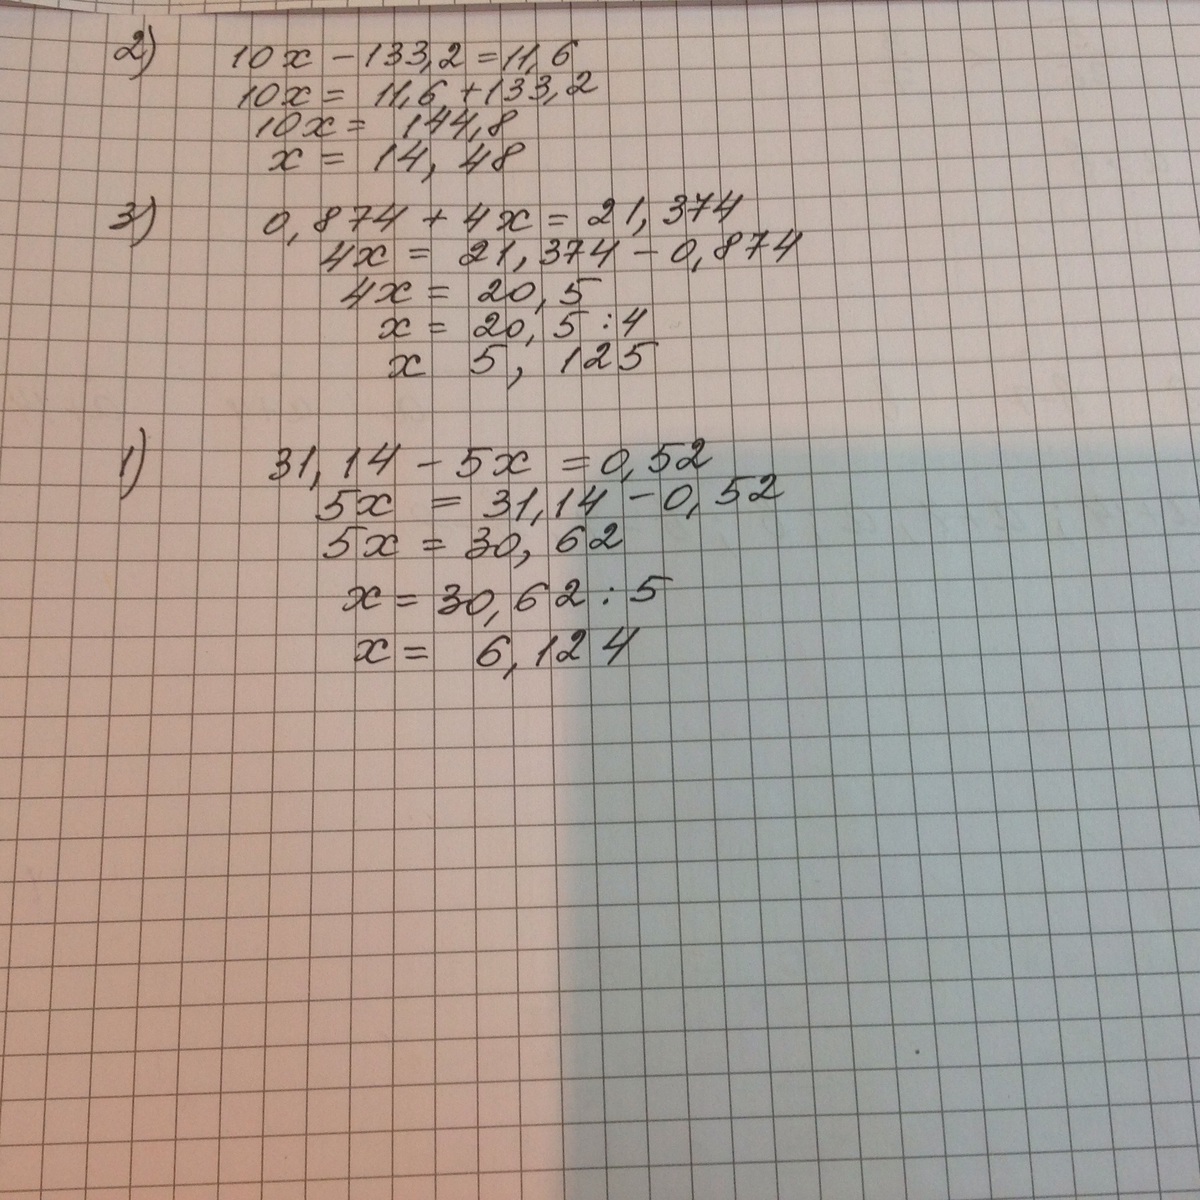 2) 10x - 133,2 = 11,6
10x = 11,6 + 133,2
10x = 144,8
x = 14,48
3) 0,874 + 4x = 21,374
4x = 21,374 - 0,874
4x = 20,5
x = 20,5 : 4
x 5,125
1) 31,14 - 5x = 0,52
5x = 31,14 - 0,52
5x = 30,62
x = 30,62 : 5
x = 6,124